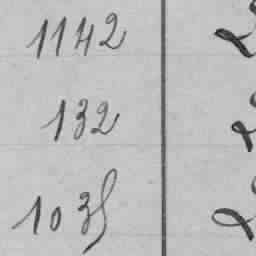 1142
132
1035